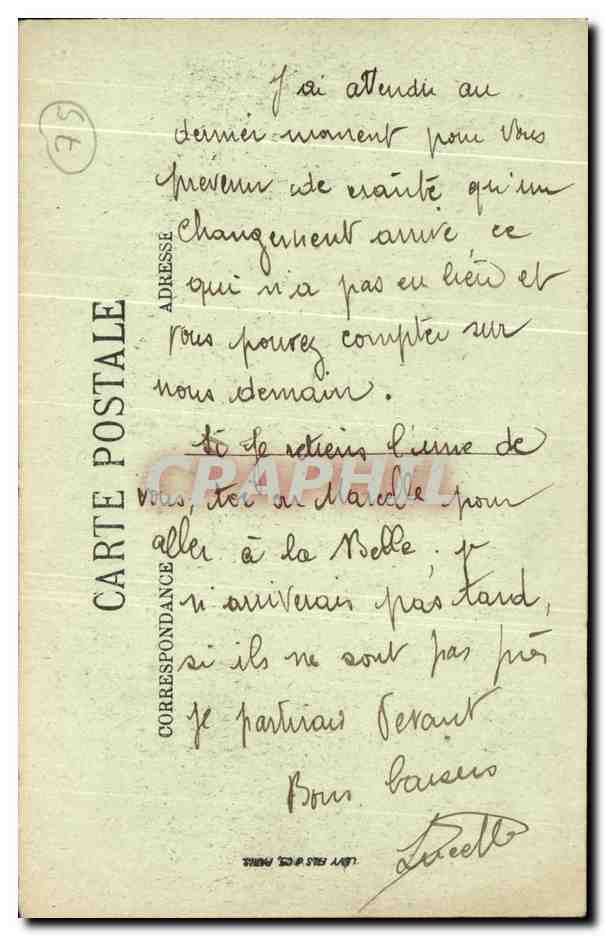 J'ai attendu au
dernier moment pour vous
prévenir de crainte qu'un
changement arrive, ce
qui n'a pas eu lieu et
vous pouvez compter sur
nous demain.
Si je retiens l'une de
vous, toi ou Marcelle pour
aller à la Belle, je
n'arriverais pas tard,
si ils ne sont pas près
je partirais devant
Bons baisers
Lucette
CARTE POSTALE
CORRESPONDANCE
ADRESSE
LÉVY FILS & Cie, PARIS
75
CRAPHILL